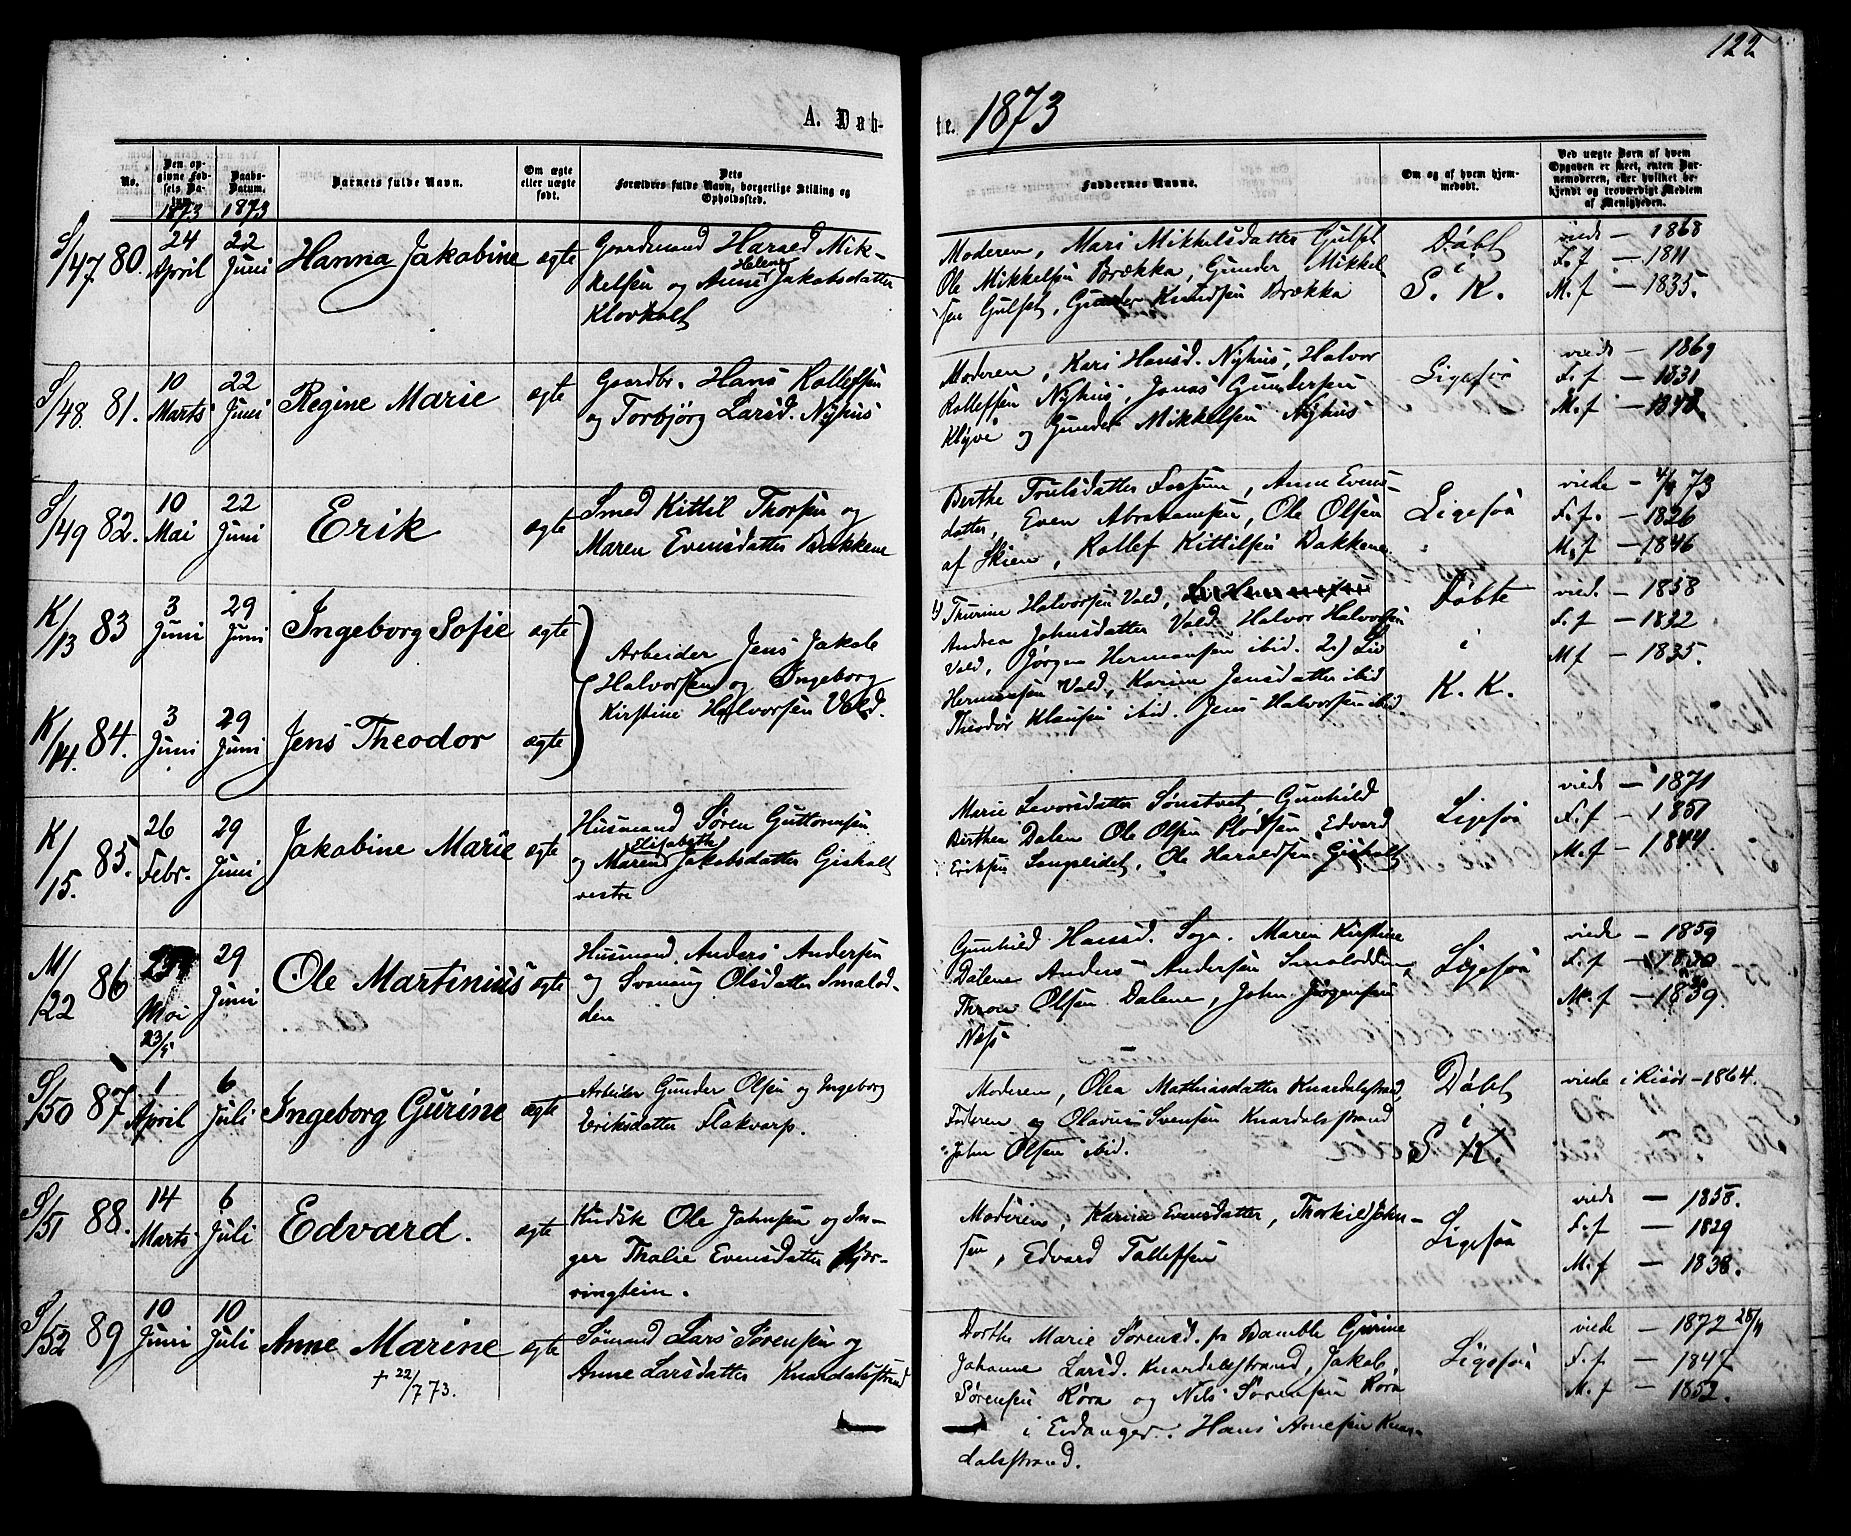 122
A. Døb-
te. 1873
No.
Den op-
givne Fød-
sels Da-
tum.
1873
Daabs-
Datum.
1873
Barnets fulde Navn.
Om ægte
eller uægte
født.
Dets
Forældres fulde Navn, borgerlige Stilling og
Opholdssted.
Faddernes Navne.
Om og af hvem hjem-
medøbt.
Ved uægte Barn af hvem
Opgaven er skeet, enten Bar-
nemoderen, eller hvilket be-
kjendt og troværdigt Medlem
af Menigheden.
S/47. 80.
24
April
22
Juni
Hanna Jakobine
ægte
Gaardmand Harald Mik-
kelsen og Anne Helene Jakobsdatter
Klovholt
Moderen, Mari Mikkelsdatter Gulset
Ole Mikkelsen Brækka, Gunder Mikkel-
sen Gulset, Gunder Knudsen Brækka
Døbt
i
S. K.
viede — 1868
F. f — 1811
M. f — 1835.
S/48. 81.
10
Marts
22
Juni
Regine Marie
ægte
Gaardbr. Hans Rollefsen
og Torbjørg Larsd. Nyhus
Moderen, Kari Hansd. Nyhus, Halvor
Rollefsen Nyhus, Jonas Gundersen
Klyve og Gunder Mikkelsen Nyhus
Ligesaa
viede — 1869
F. f — 1831
M. f — 1848
S/49 82.
10
Mai
22
Juni
Erik
ægte
Smed Kittil Thorsen og
Maren Evensdatter Bakkene
Berthe Trulsdatter Fossum, Anne Evens-
datter, Even Abrahamsen, Ole Olsen
af Skien, Rollef Kittilsen Bakkene
Ligesaa
viede — 73
F. f. — 1826
M. f — 1846
K/13 83
3
Juni
29
Juni
Ingeborg Sofie
ægte
Arbeider Jens Jakob
Halvorsen og Ingeborg
Kirstine Halvorsen Vold.
1) Thurine Halvorsen Vold,
Andrea Johnsdatter Vold, Halvor Halvorsen
Vold, Jørgen Hermansen ibid. 2) Liv
Hermansen Vold, Karine Jensdatter ibid
Theodor Klausen ibid. Jens Halvorsen ibid.
Døbte
i
K. K.
vied. — 1858
F. f — 1832
M f — 1835.
K/14. 84.
3
Juni
29
Juni
Jens Theodor
ægte
K/15. 85.
26
Febr.
29
Juni
Jakobine Marie
ægte
Husmand Søren Guttormsen
og Maren Elisabeth Jakobsdatter Gisholt
vestre
Marie Levorsdatter Sønstvet, Gunhild
Berthea Dalen Ole Olsen Edvard
Eriksen Langslidet, Ole Haraldsen Gisholt
Ligesaa
viede — 1871
F. f — 1851
M. f — 1844.
M/22 86
Mai
23/5
29
Juni
Ole Martinius
ægte
Husmand Anders Andersen
og Svanaug Olsdatter Smalod-
den
Gunhild Hansd. Soga. Maren Kirstine
Dalene Anders Andersen Smalodden,
Thron Olsen Dalene, John Jørgensen
Næs
Ligesaa
viede — 1859
F. f — 1830
M. f — 1839.
S/50 87
1
April
6
Juli
Ingeborg Gurine
ægte
Arbeider Gunder Olsen og Ingeborg
Eriksdatter Flakvarp.
Moderen, Olea Mathiasdatter Knardalsstrand,
Faderen og Olavus Svensen Knardalsstrand
John Olsen ibid.
Døbt
i
S. K.
viede i Risør — 1864.
S/51 88.
14
Marts
6
Juli
Edvard.
ægte
Kudsk Ole Johnsen og In-
ger Thalie Evensdatter Hjør-
ringtein.
Moderen, Karine Evensdatter, Thorkild John-
sen, Edvard Tollefsen
Ligesaa
viede — 1858.
F. f — 1829
M. f — 1838.
S/52 89
10
Juni
10
Juli
Anne Marine
+ 22/7 73.
ægte
Sømand Lars Sørensen og
Anne Larsdatter Knardalsstrand
Dorthe Marie Sørensd. fra Bamble Gurine
Johanne Larsd. Knardalsstrand, Jakob
Sørensen Røra og Nils Sørensen Røra
i Eidanger. Hans Arnesen Knar-
dalsstrand.
Ligesaa
viede — 1872 28/11
F. f — 1847
M. f — 1852.